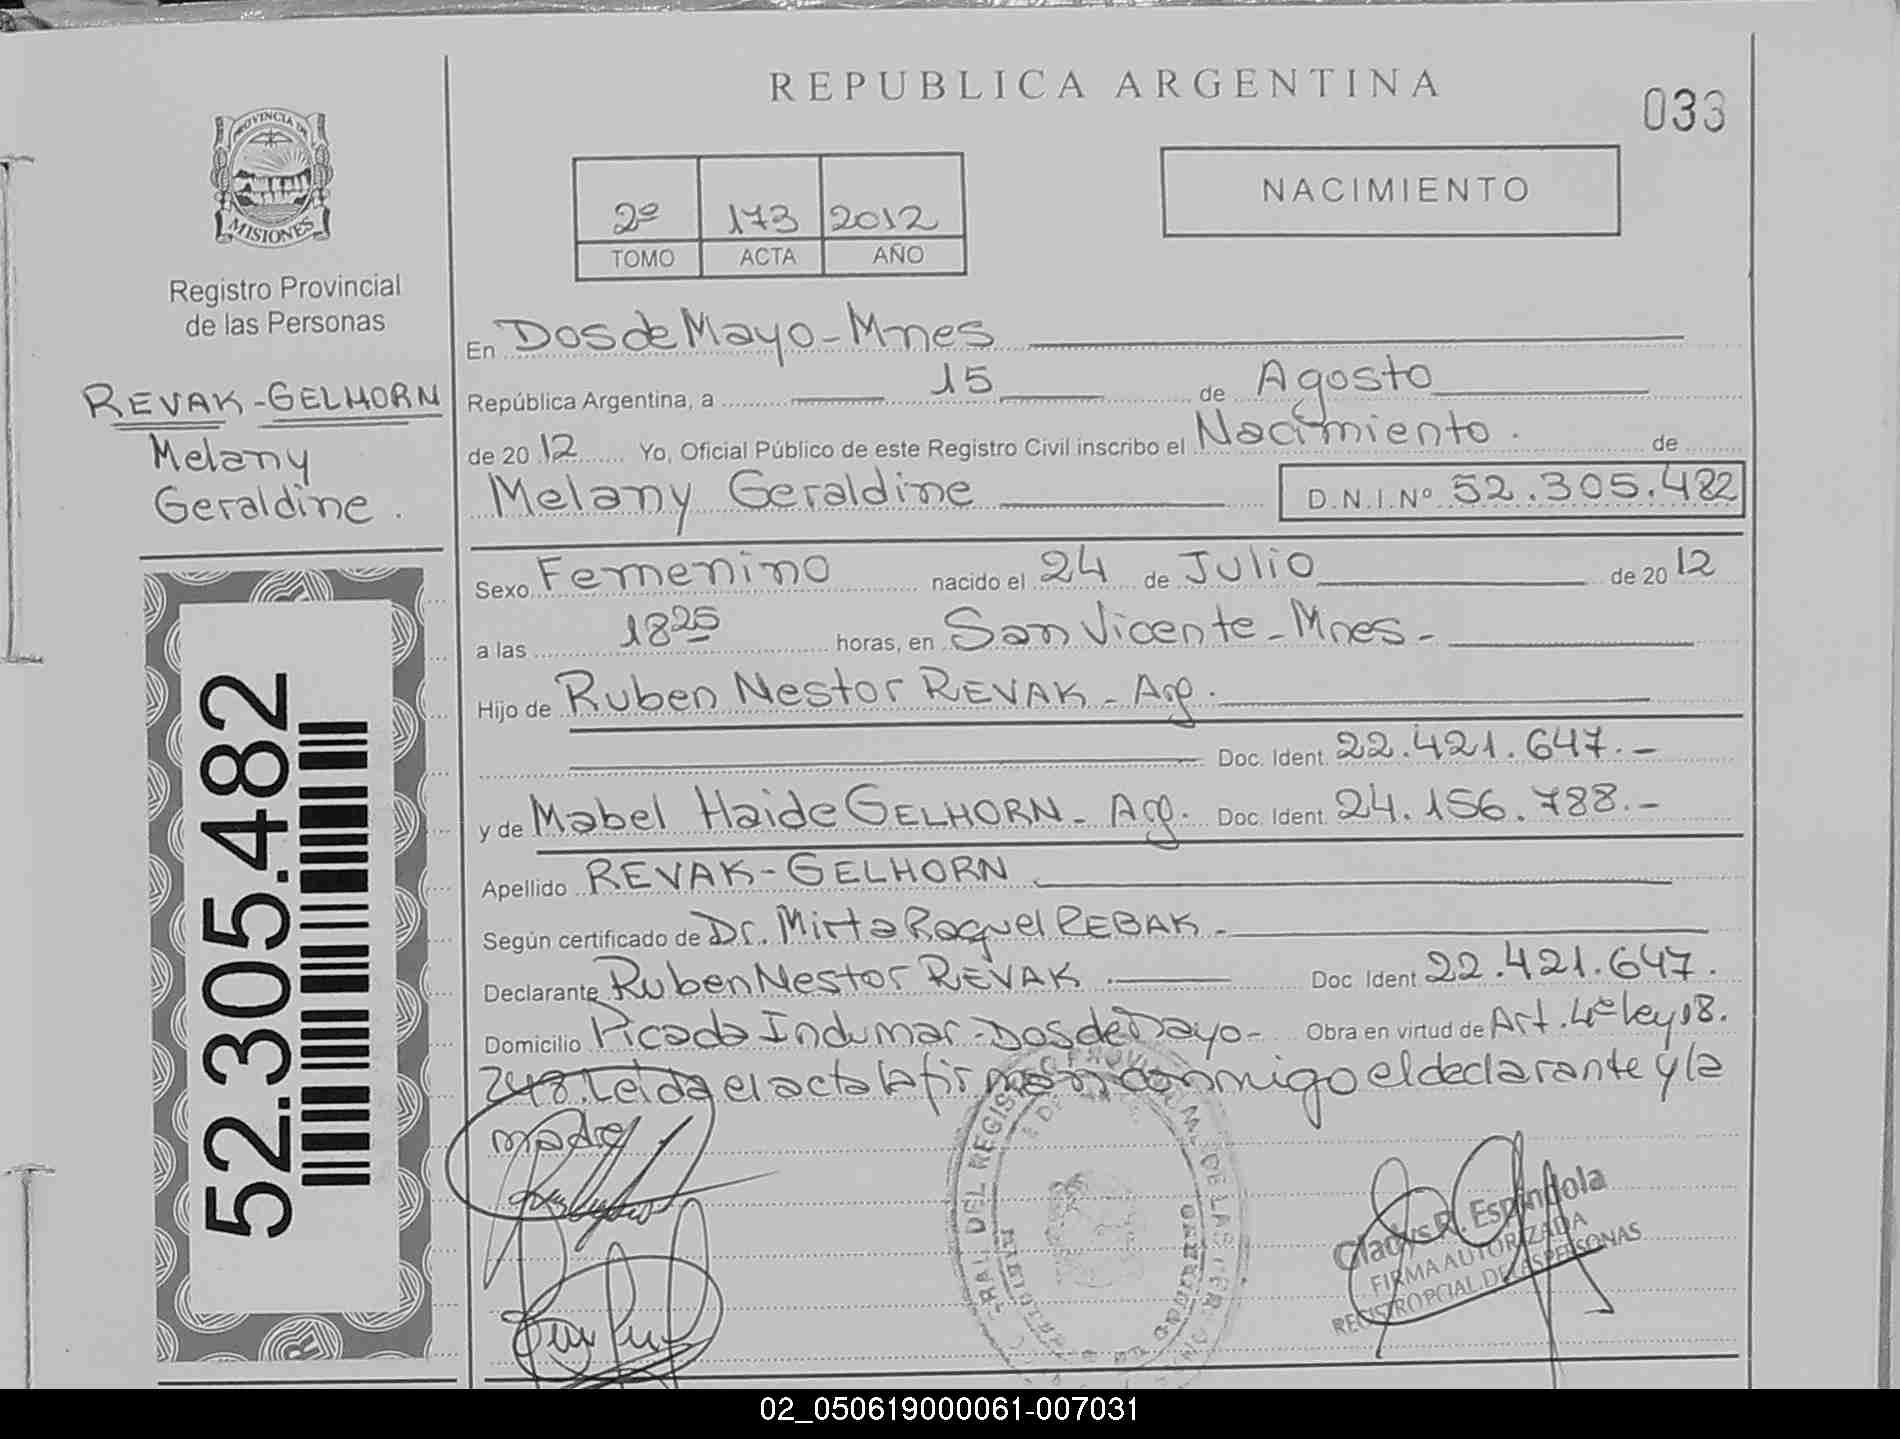 REPUBLICA ARGENTINA
033
PROVINCIA DE
MISIONES
Registro Provincial
de las Personas
REVAK-GELHORN
Melany
Geraldine.
52.305.482
2º 173 2012
TOMO ACTA AÑO
NACIMIENTO
En Dos de Mayo-Mnes
República Argentina, a 15 de Agosto
de 2012 Yo, Oficial Público de este Registro Civil inscribo el Nacimiento. de
Melany Geraldine D.N.I.Nº 52.305.482
Sexo Femenino nacido el 24 de Julio de 2012
a las 18 25 horas, en San Vicente-Mnes-
Hijo de Ruben Nestor REVAK-Arg.
Doc. Ident. 22.421.647.-
y de Mabel Haide GELHORN-Arg. Doc. Ident. 24.156.788.-
Apellido REVAK-GELHORN
Según certificado de Dr. Mirta Raquel REBAK-
Declarante Ruben Nestor REVAK Doc. Ident. 22.421.647.
Domicilio Picada Indumar-Dos de Mayo- Obra en virtud de Art. 4º ley 18.
248. Leida el acta la firman conmigo el declarante y la
madre.
Gladys R. Espindola
FIRMA AUTORIZADA
REGISTRO PCIAL. DE LAS PERSONAS
02_050619000061-007031